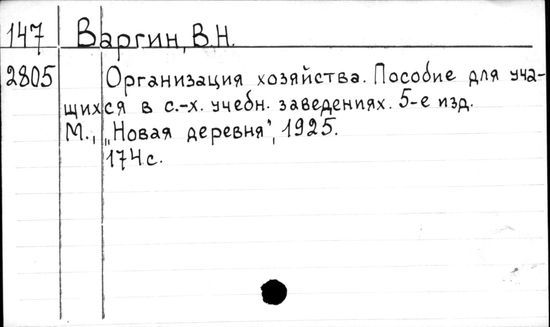 147 Варгин, В.Н.
2805 Организация хозяйства. Пособие для уча-
щихся в с.-х. учебн. заведениях. 5-е изд.
М., „Новая деревня", 1925.
174 с.